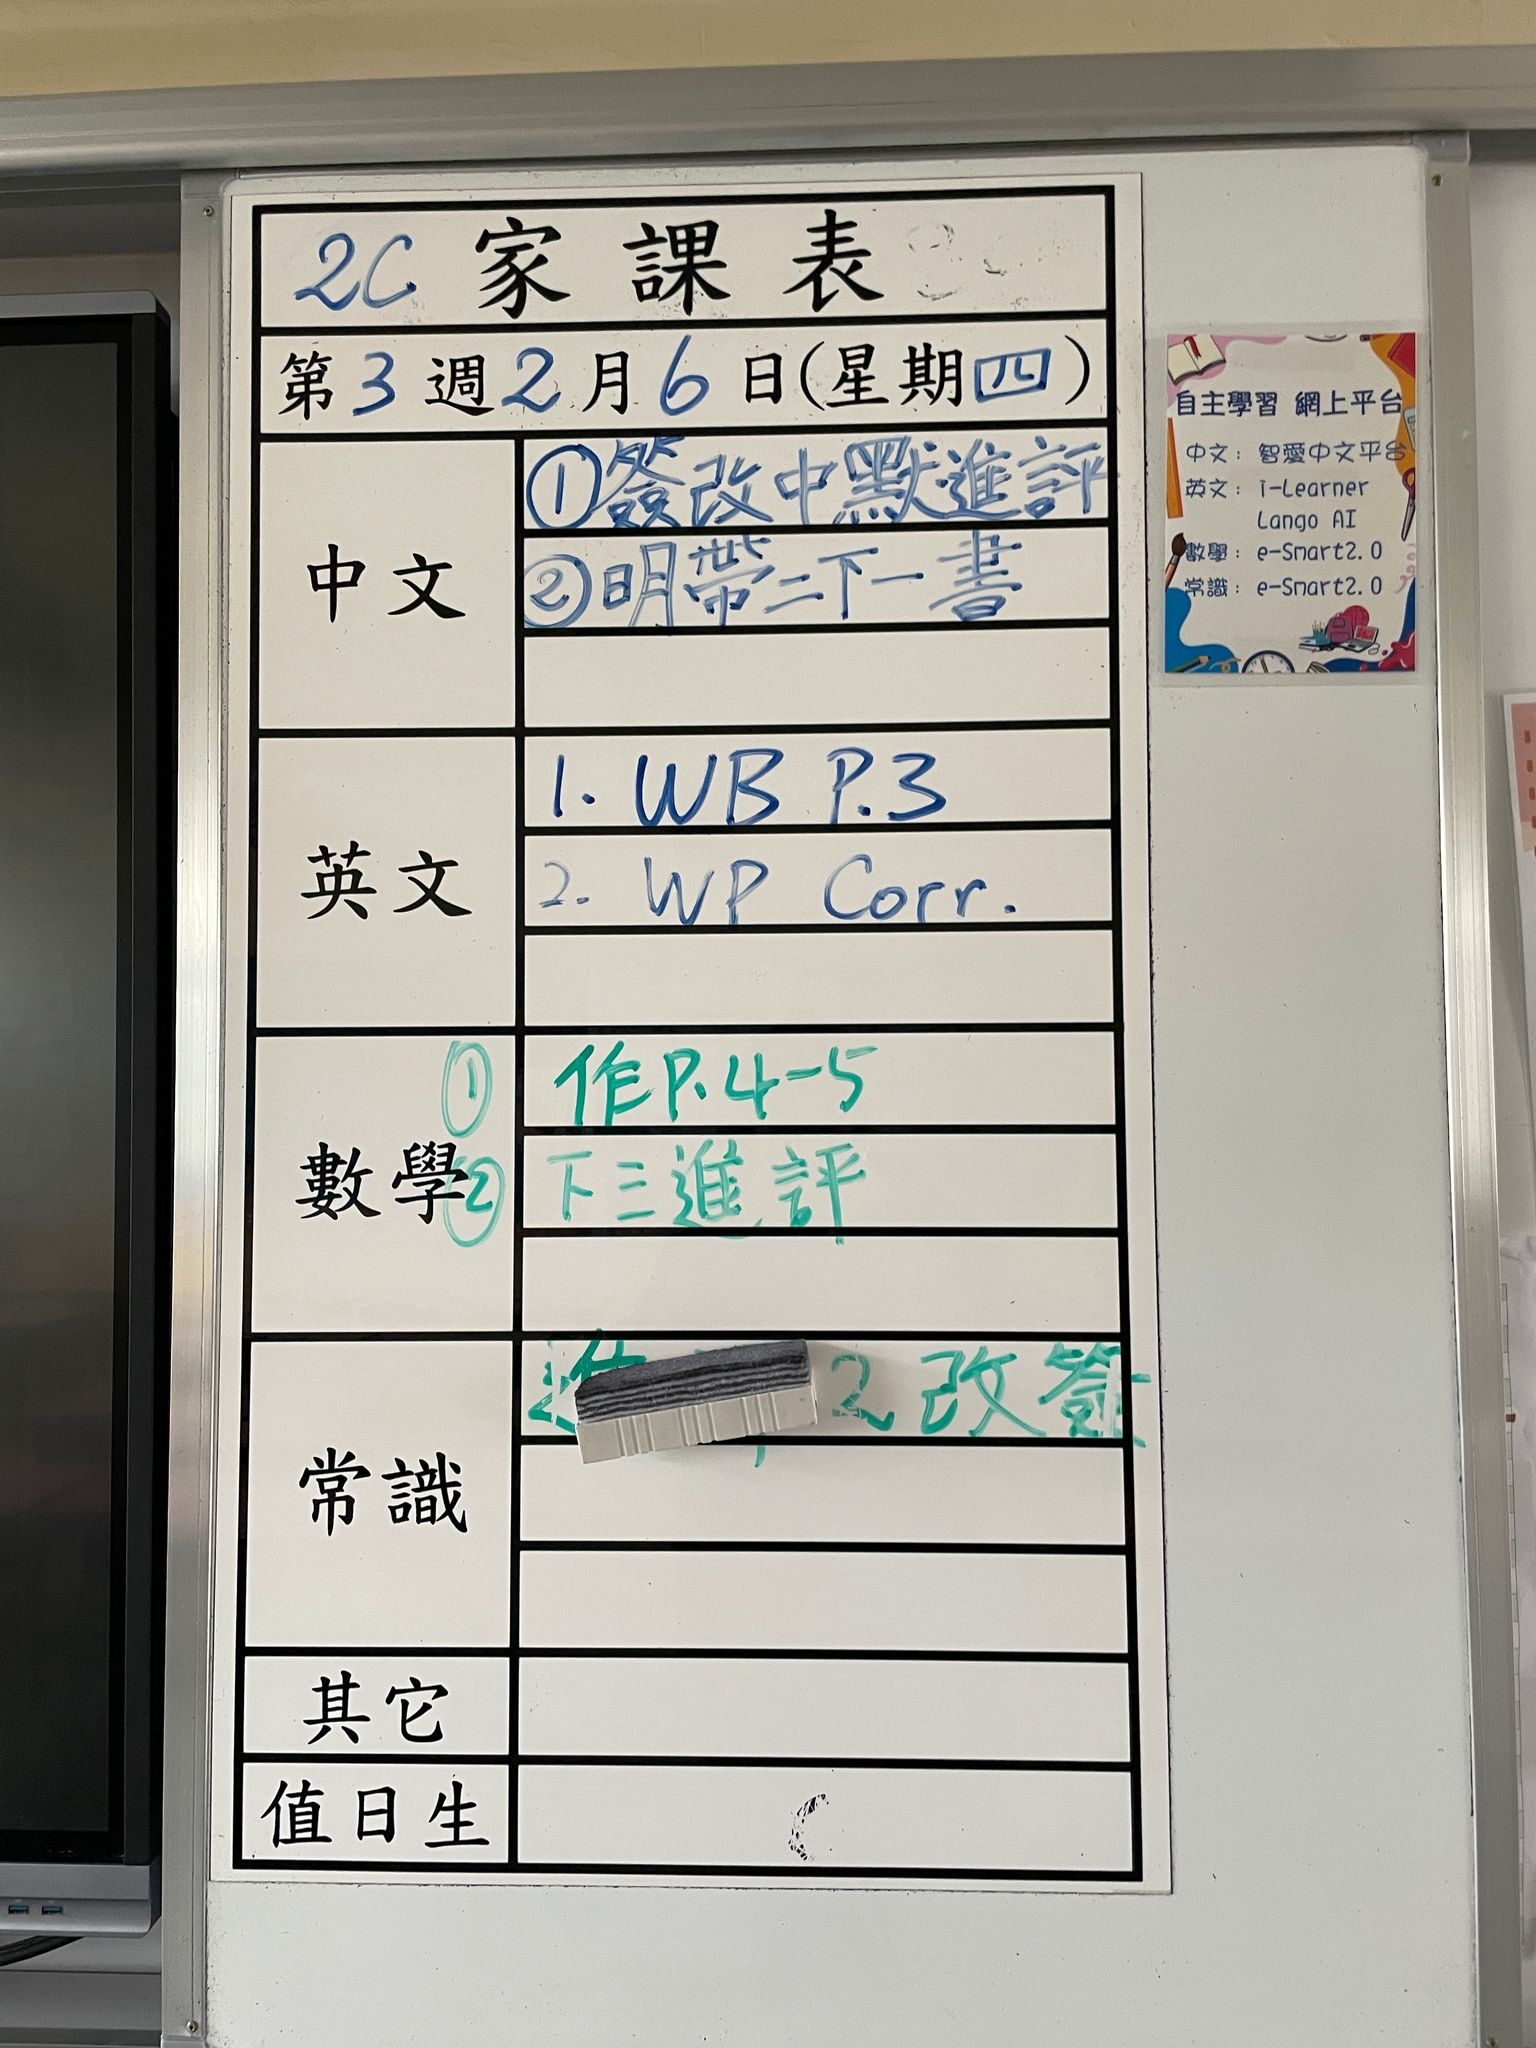 2C 家課表
第3週2月6日(星期四)
中文
①簽改中默進評
②明帶二下一書
英文
1. WB P.3
2. WP Corr.
數學
① 作P.4-5
② 下三進評
常識
進 2改簽
其它
值日生
自主學習 網上平台
中文: 智愛中文平台
英文: i-Learner
Lango AI
數學: e-Smart2.0
常識: e-Smart2.0